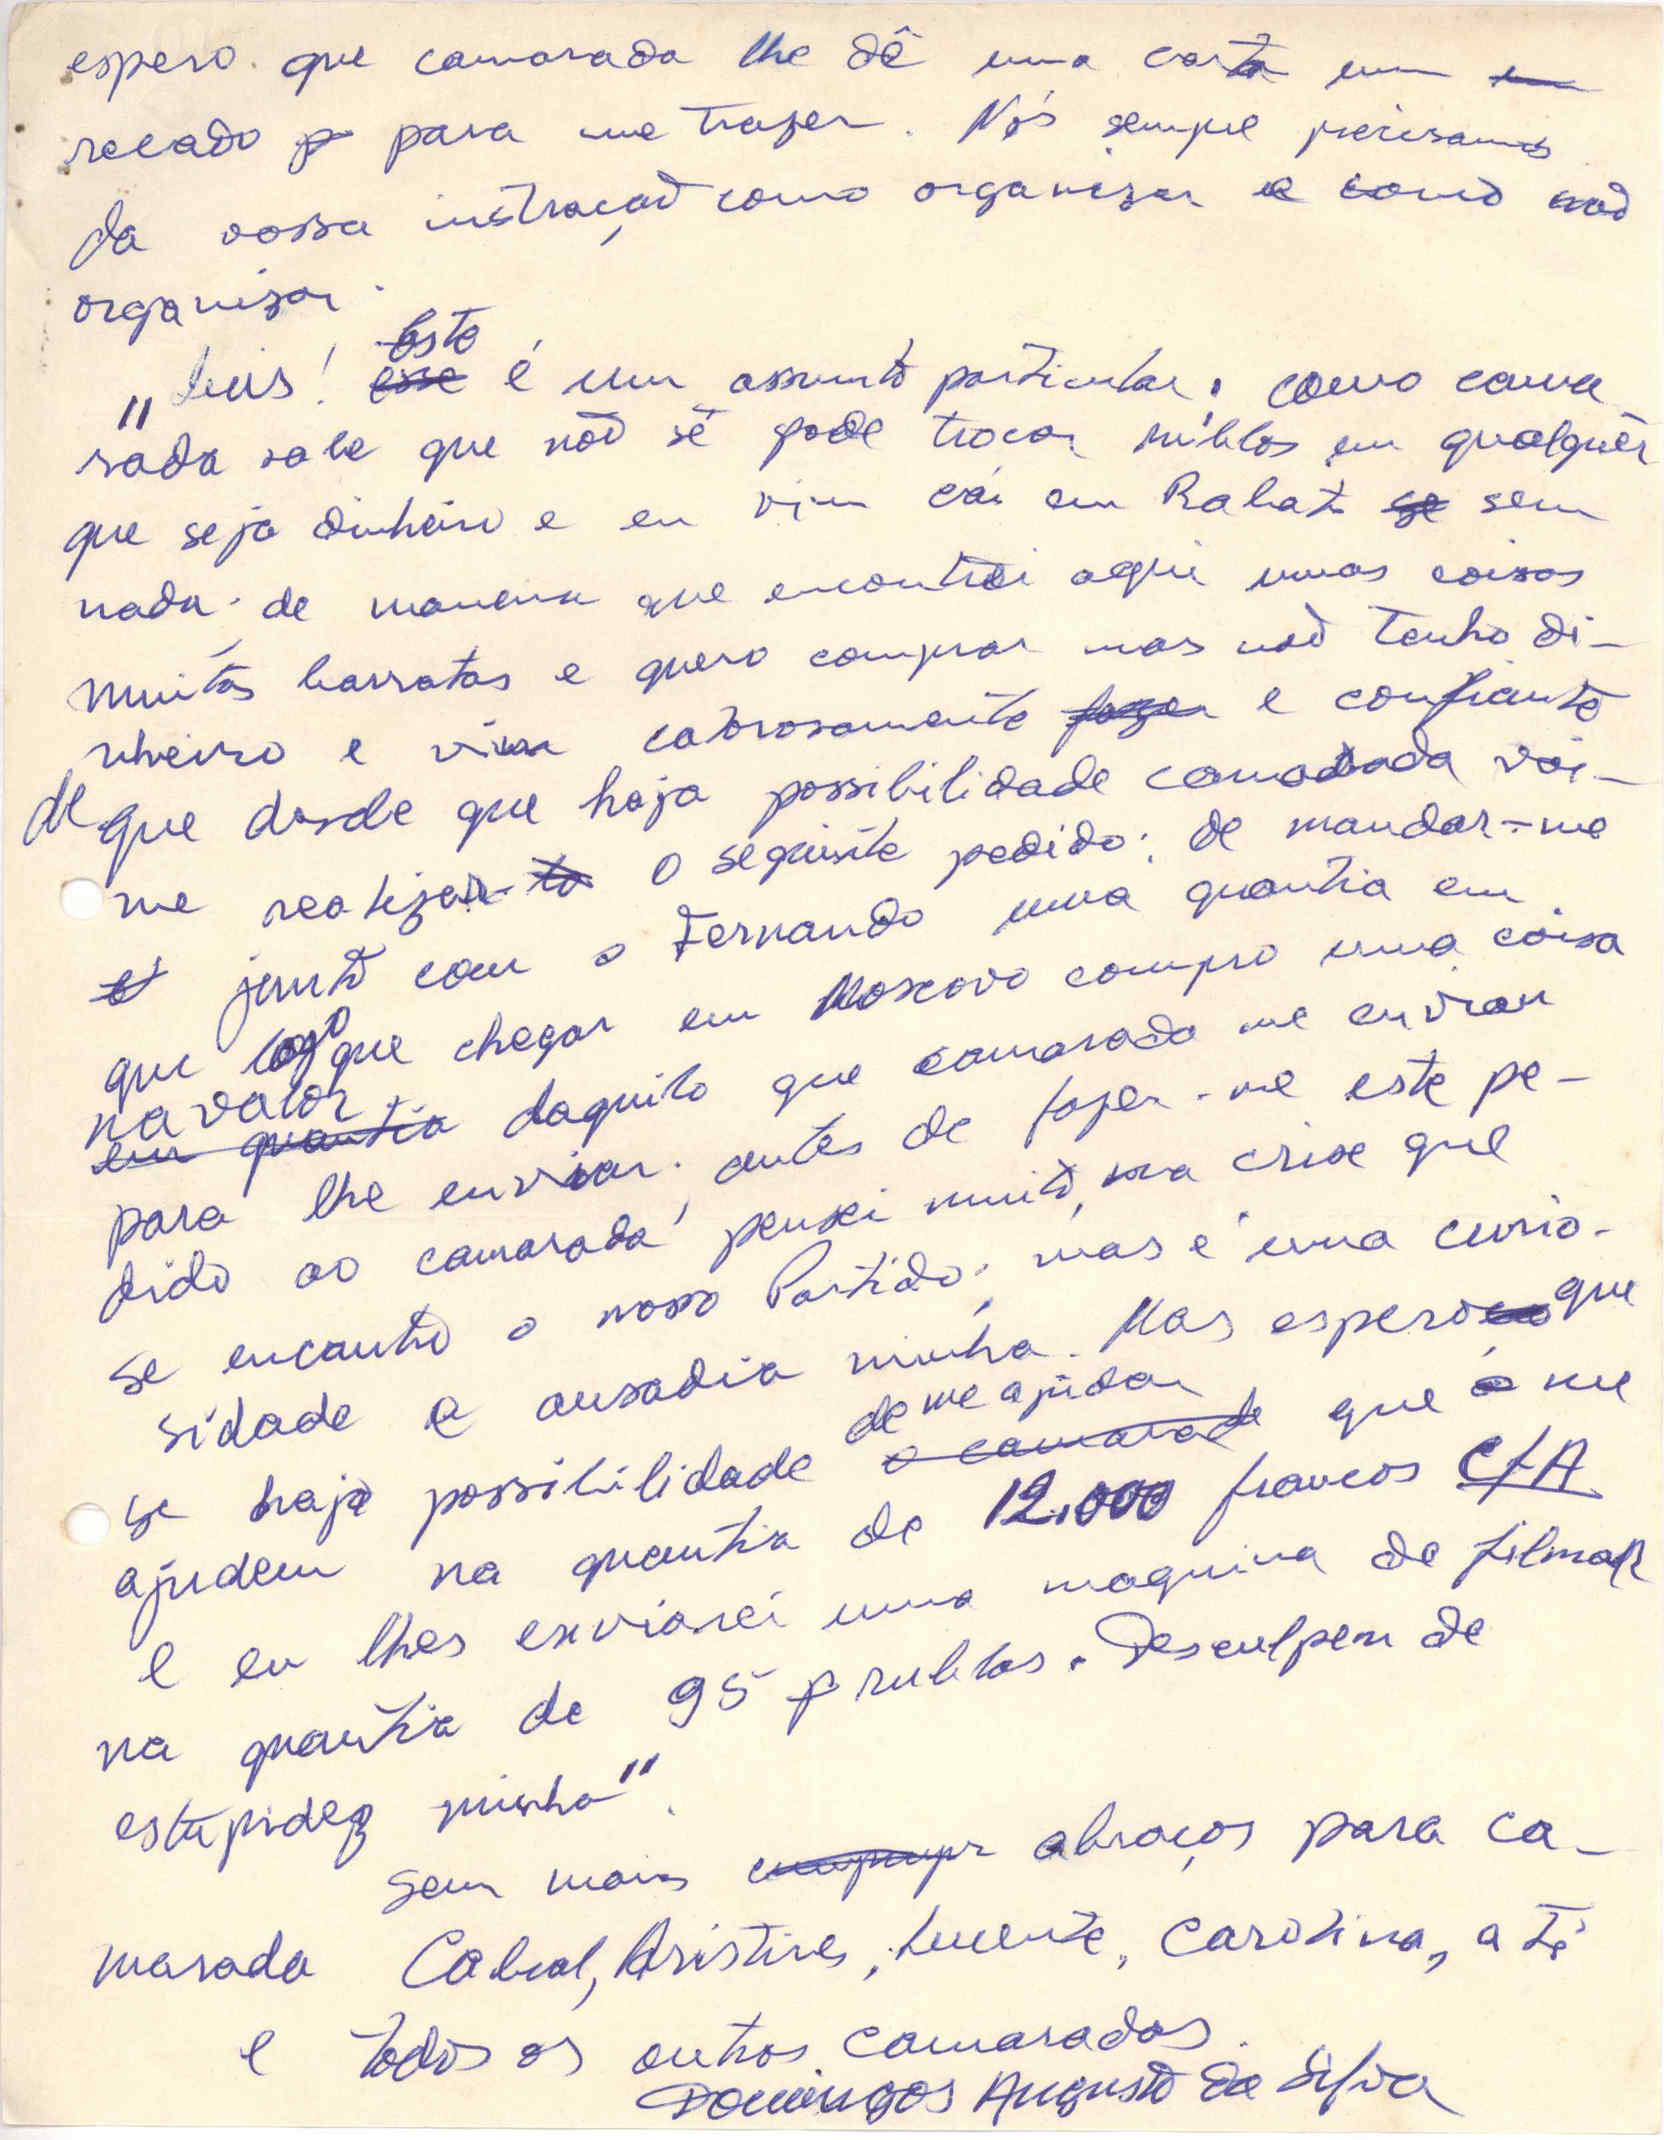 espero. que camarada lhe dê uma carta um
recado para me trazer. Nós sempre precisamos
da vossa instração como organisar e como não
organisar.
"Luis! Este é um assunto particular. como cama
rada sabe que não sê pode trocar rublos em qualquêr
que seja dinheiro e eu vim cái em Rabat sem
nada. de maneira que encontrei aqui umas coisas
muitas barratas e quero comprar mas não tenho di-
nheiro e vim caborosamente e confiante
de que desde que haja possibilidade camarada vai-
me realizar o seguinte pedido: de mandar-me
junto com o Fernando uma quantia em
que logo que chegar em Moscovo compro uma coisa
na valor daquilo que camarada me enviar
para lhe enviar. antes de fazer-me este pe-
dido ao camarada pensei muito, na crise que
se encontro o nosso Partido; mas é uma curio-
sidade e ousadia minha. Mas espero que
se haja possibilidade de me ajudar que me
ajudem na quantia de 12.000 francos CFA
e eu lhes enviarei uma maquina de filmar
na quantia de 95 rublos. Desculpem de
estupidez minha".
Sem mais abraços para ca-
marada Cabral, Aristires, Lucente, Carotina, a ti
e todos os outros camaradas.
Domingos Augusto da Silva